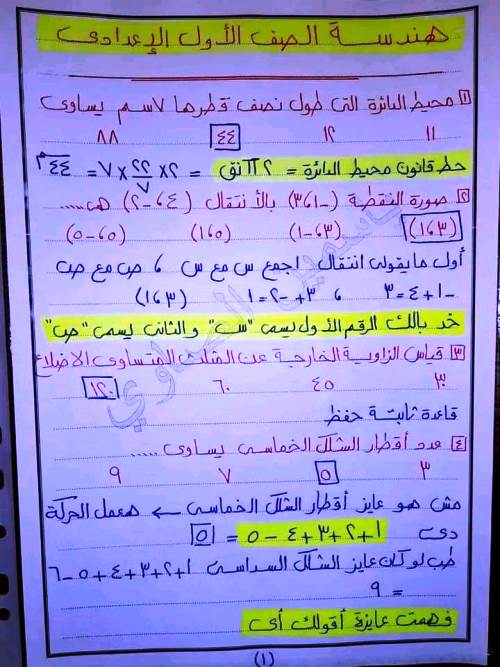 هندسة الصف الأول الإعدادى
١ محيط الدائرة التى طول نصف قطرها ٧سم يساوى
١١ ١٢ ٤٤ ٨٨
حط قانون محيط الدائرة = ٢ π نق = ٢ × ٢٢/٧ × ٧ = ٤٤ سم
٢ صورة النقطة (-١،٣) بالأنتقال (٤،-٢) هى.....
(٣،١) (٣،-١) (١،٥) (٥،-٥)
أول ما يقولى انتقال اجمع س مع س ، ص مع ص
-١+٤=٣ ، ٣+-٢=١ (٣،١)
خد بالك الرقم الأول يسمى "س" والثانى يسمى "ص"
٣ قياس الزاوية الخارجة عن المثلث المتساوى الاضلاع
٣٠ ٤٥ ٦٠ ١٢٠
قاعدة ثابتة حفظ
٤ عدد أقطار الشكل الخماسى يساوى .....
٣ ٥ ٧ ٩
مش هو عايز أقطار الشكل الخماسى ← هعمل الحركة
دى ١+٢+٣+٤-٥ = ٥
طب لو كان عايز الشكل السداسى ١+٢+٣+٤+٥-٦
= ٩
فهمت عايزة أقولك أى
(١)
ياسمين